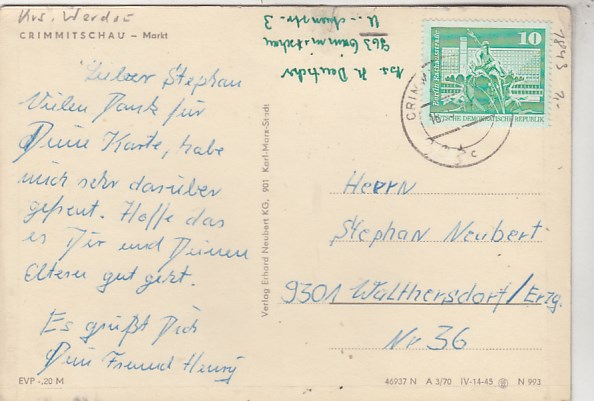 Krs. Werdau
CRIMMITSCHAU – Markt
Lieber Stephan
Vielen Dank für
Deine Karte, habe
mich sehr darüber
gefreut. Hoffe das
es Dir und Deinen
Elteren gut geht.
Es grüßt Dich
Dein Freund Henry
EVP -,20 M
Verlag Erhard Neubert KG, 901 Karl-Marx-Stadt
Abs. H. Deutscher
963 Crimmitschau
10
Berlin, Rathausstraße
DEUTSCHE DEMOKRATISCHE REPUBLIK
CRIMM
18
Herrn
Stephan Neubert
9301 Walthersdorf/Erzg.
Nr 36
46937 N A 3/70 IV-14-45 N 993